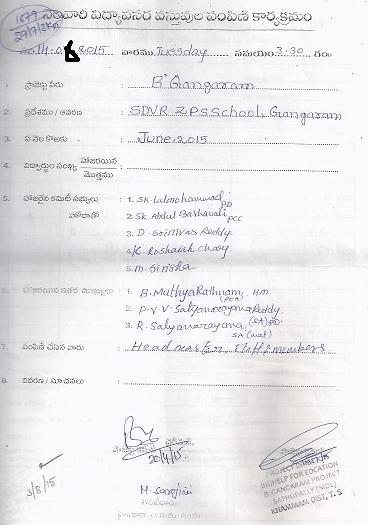 నెలవారీ విద్యావసర వస్తువుల పంపిణీ కార్యక్రమం
2015 వారము Tuesday సమయం: 3-30 గం
1. ప్రాజెక్టు పేరు : B' Gangaram
2. ప్రదేశము / ఆవరణ : SDVR Z.P.S School, Gangaram
3. ఏ నెల కొరకు : June-2015
4. విద్యార్థుల సంఖ్య హాజరయిన
మొత్తము
5. హాజరైన కమిటీ సభ్యులు : 1. SK. Lalmohammad PD
హోదాతో 2. SK. Abdul Bashavali PCC
3. D. Srinivas Reddy
4. K Roshaiah Chary
5. M. Sirisha
6. హాజరయిన ఇతర ముఖ్యులు : 1. B. MuthyaRathnam, H.M
2. P.V.V. Satyanarayana Reddy.
3. R. Satyanarayana,
7. పంపిణీ చేసిన వారు : Headmaster, staff members
8. వివరణ / సూచనలు :
20/4/15
3/8/15
PROJECT
BIGHELP FOR EDCATION
B. GANGARAM PROJECT
SATHUPALLY (MDL)
KHAMMAM DIST, T. S